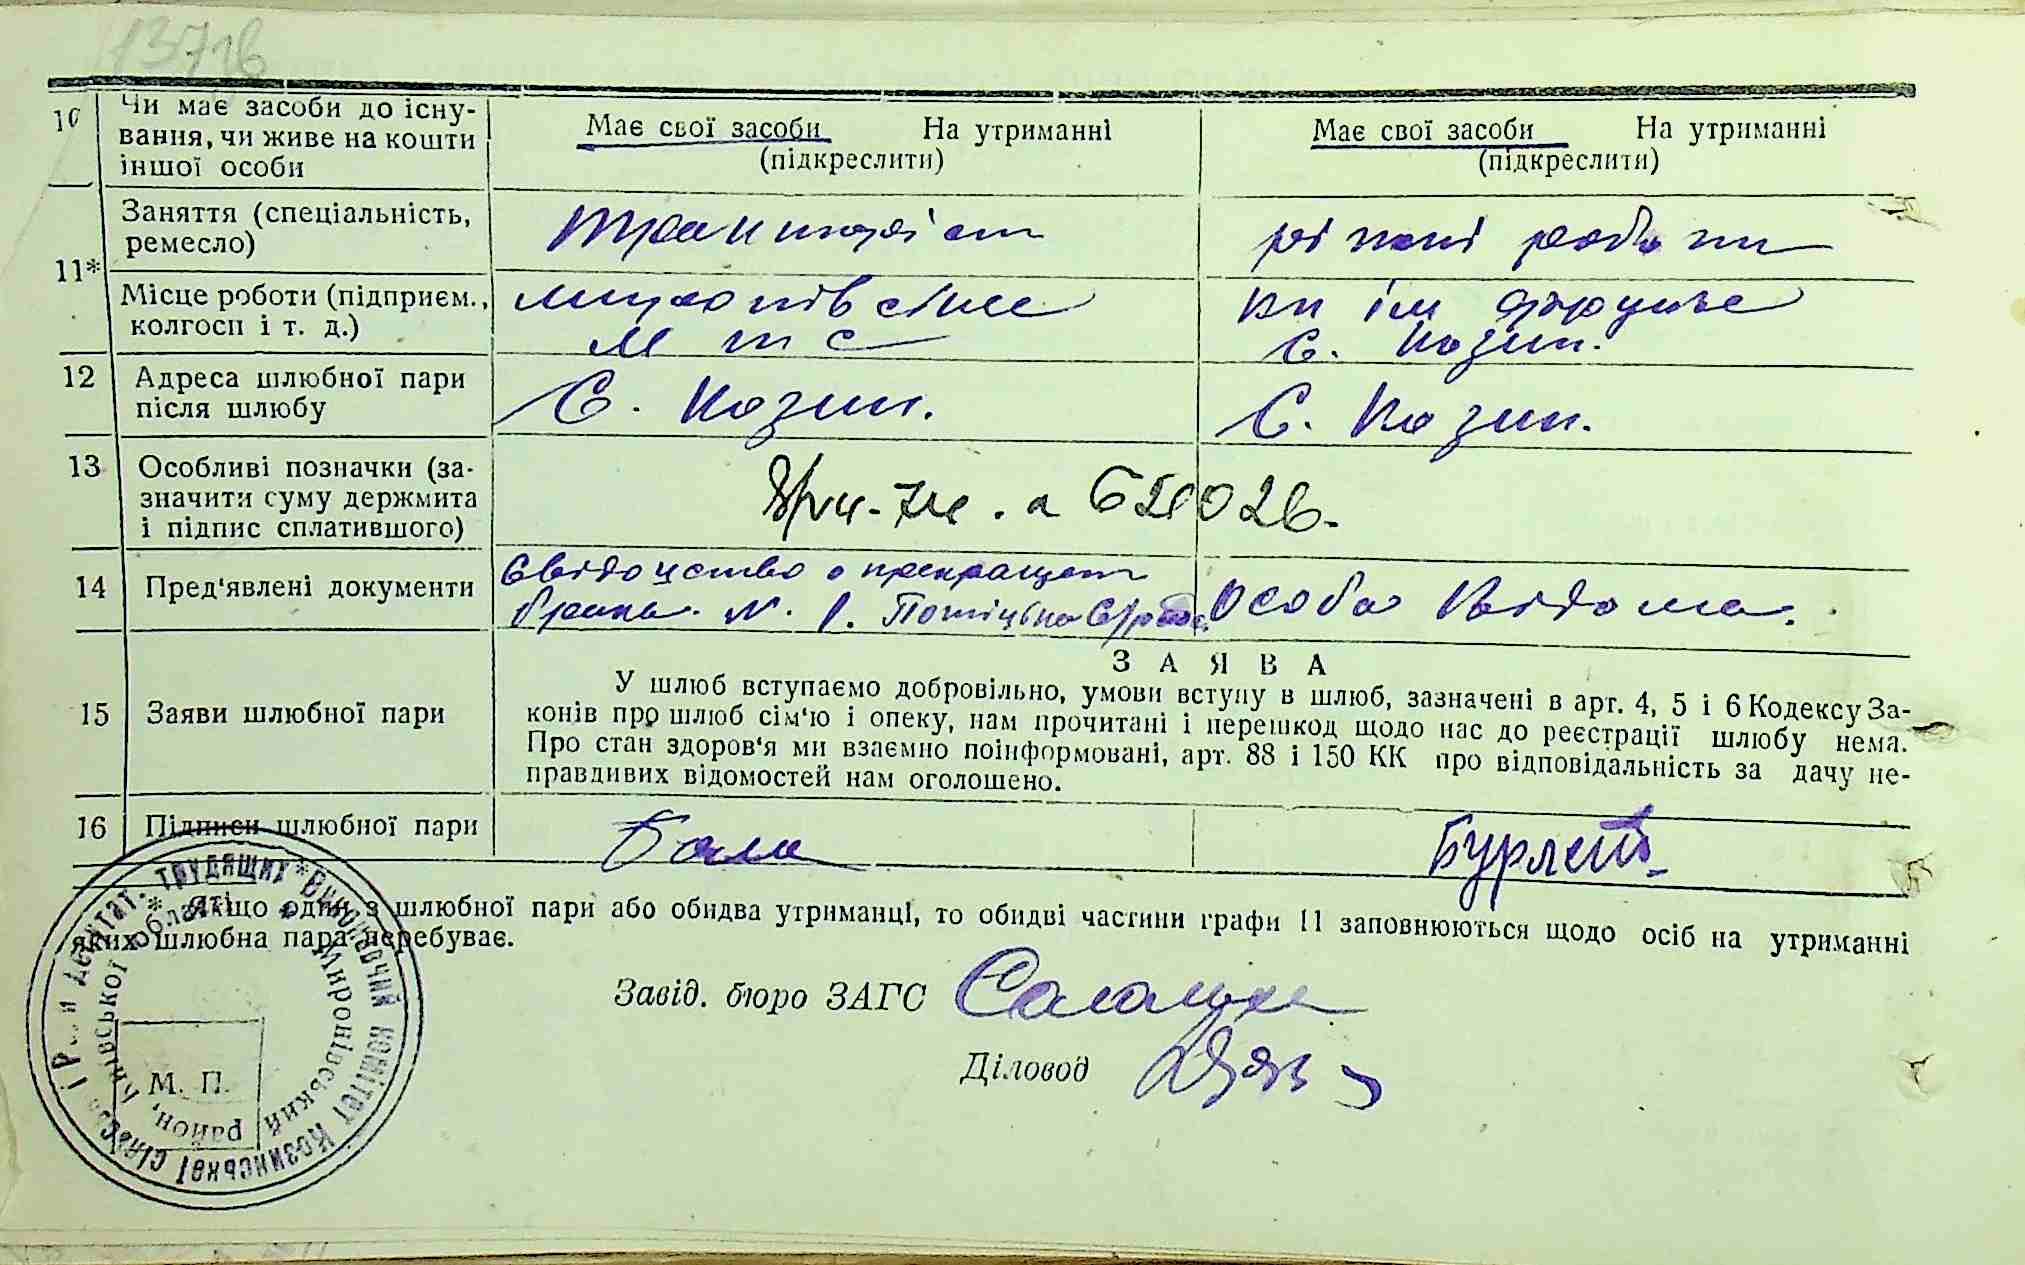 137зв
10
Чи має засоби до існу-
вання, чи живе на кошти
іншої особи
Має свої засоби На утриманні
(підкреслити)
Має свої засоби На утриманні
(підкреслити)
11*
Заняття (спеціальність,
ремесло)
різні роботи
Місце роботи (підприєм.,
колгосп і т. д.)
М Т С
с. Козин.
12
Адреса шлюбної пари
після шлюбу
С. Козин.
С. Козин.
13
Особливі позначки (за-
значити суму держмита
і підпис сплатившого)
14
Пред'явлені документи
Свідоцтво о прекращении
брака. N.
Особа відома.
З А Я В А
15
Заяви шлюбної пари
У шлюб вступаємо добровільно, умови вступу в шлюб, зазначені в арт. 4, 5 і 6 Кодексу За-
конів про шлюб сім'ю і опеку, нам прочитані і перешкод щодо нас до реєстрації шлюбу нема.
Про стан здоров'я ми взаємно поінформовані, арт. 88 і 150 КК про відповідальність за дачу не-
правдивих відомостей нам оголошено.
16
Підписи шлюбної пари
Якщо один з шлюбної пари або обидва утриманці, то обидві частини графи 11 заповнюються щодо осіб на утриманні
яких шлюбна пара перебуває.
Завід. бюро ЗАГС
Діловод
М. П.
Виконавчий комітет Козинської сільської Ради депутат. трудящих
Миронівський район, Київської області